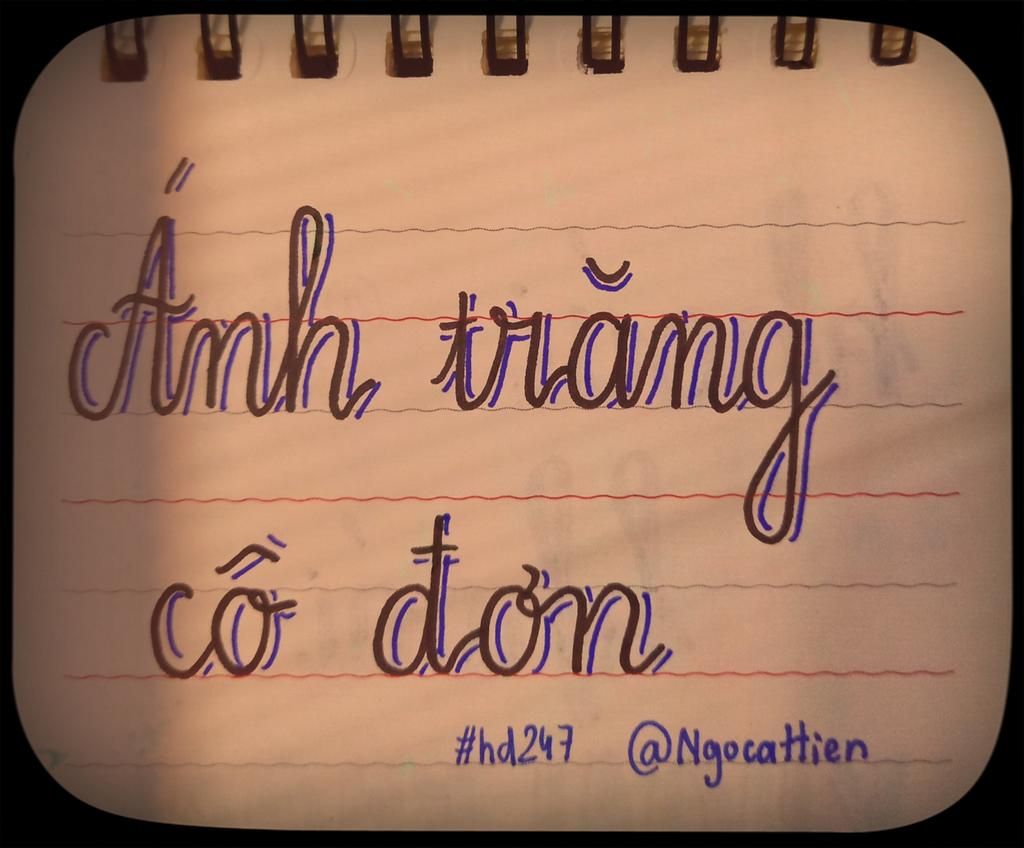 Ánh trăng
cô đơn
#hd247 @Ngocattien